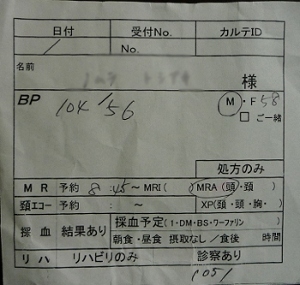 日付 受付No. カルテID
/ No.
名前
様
BP 104/56
M・F 58
□ ご一緒
処方のみ
MR 予約 8:45～ MRI( MRA(頭・頚)
頚エコー 予約 : ～ XP(頭・頚・胸・ )
採血 結果あり 採血予定(1・DM・BS・ワーファリン)
朝食・昼食 摂取なし/食後 時間
リハ リハビリのみ 診察あり
1051